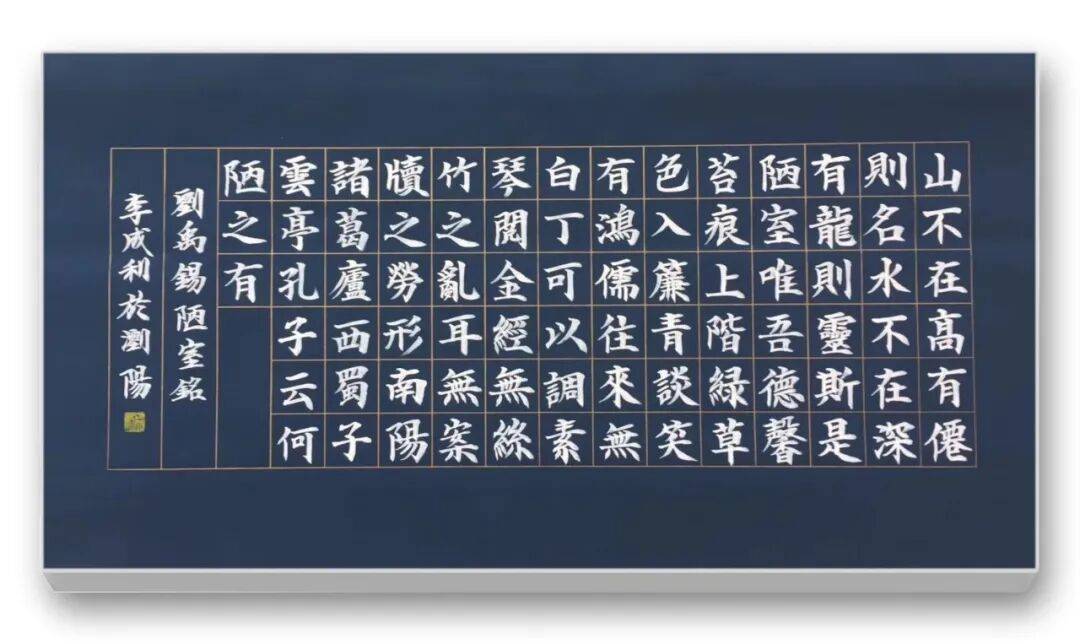 山不在高有僊
則名水不在深
有龍則靈斯是
陋室唯吾德馨
苔痕上階緑草
色入簾青談笑
有鴻儒往來無
白丁可以調素
琴閲金經無絲
竹之亂耳無案
牘之勞形南陽
諸葛廬西蜀子
雲亭孔子云何
陋之有
劉禹錫陋室銘
李成利於瀏陽